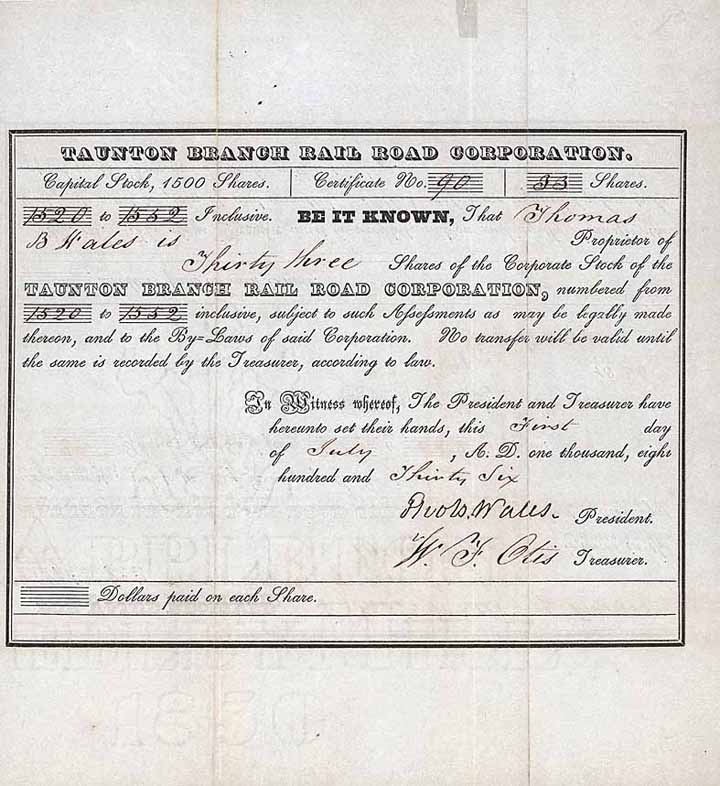 TAUNTON BRANCH RAIL ROAD CORPORATION.
Capital Stock, 1500 Shares. Certificate No. 90 33 Shares.
1520 to 1552 Inclusive. BE IT KNOWN, That Thomas
B Wales is Proprietor of
Thirty three Shares of the Corporate Stock of the
TAUNTON BRANCH RAIL ROAD CORPORATION, numbered from
1520 to 1552 inclusive, subject to such Assessments as may be legally made
thereon, and to the By=Laws of said Corporation. No transfer will be valid until
the same is recorded by the Treasurer, according to law.
In Witness whereof, The President and Treasurer have
hereunto set their hands, this First day
of July, A. D. one thousand, eight
hundred and Thirty Six
Wales. President.
W. F. Otis Treasurer.
Dollars paid on each Share.